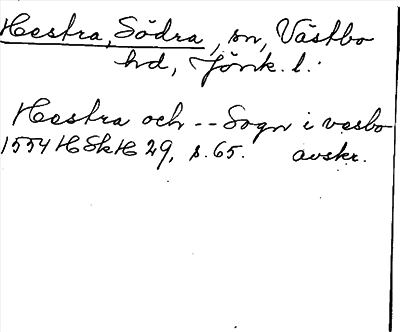 Hestra, Södra, sn, Västbo
hd, Jönk. l.
Hestra och -- Sogn i vesbo
1554 HSkH 29, s. 65. avskr.